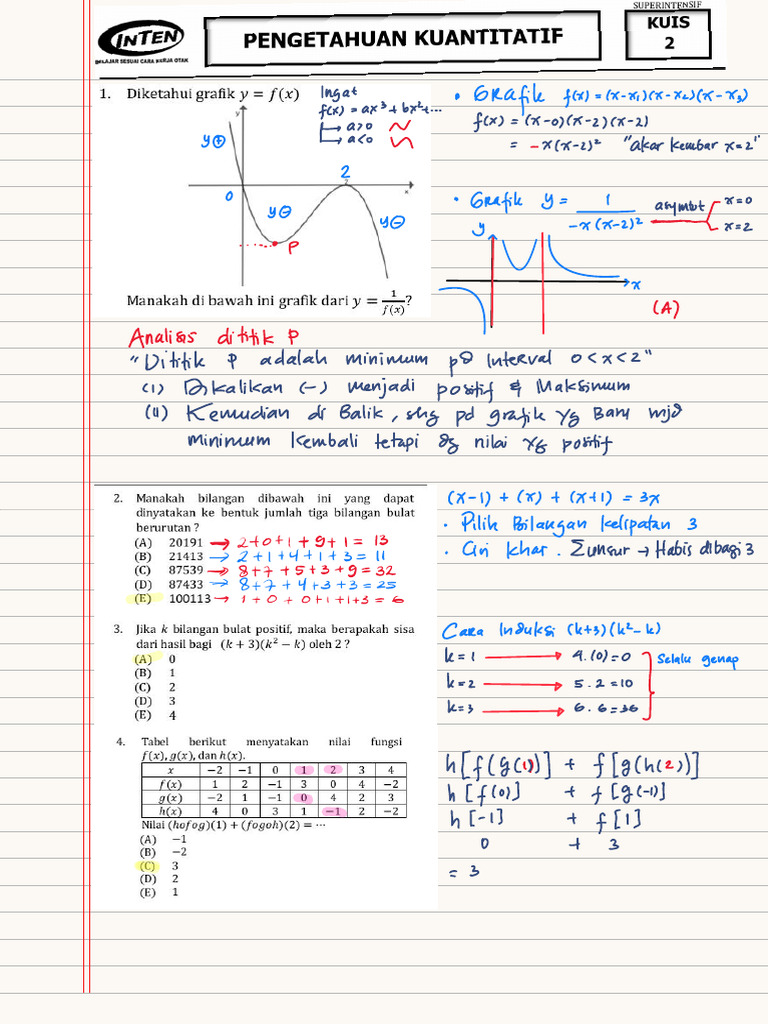 SUPERINTENSIF
INTEN
BELAJAR SESUAI CARA KERJA OTAK
PENGETAHUAN KUANTITATIF
KUIS
2
1. Diketahui grafik y = f(x)
Ingat
f(x) = ax³ + bx² + ...
a>0
a<0
y
x
y⊕
0
y⊖
2
y⊖
P
Manakah di bawah ini grafik dari y = 1/f(x)?
• Grafik f(x) = (x-x₁)(x-x₂)(x-x₃)
f(x) = (x-0)(x-2)(x-2)
= -x(x-2)² "akar kembar x=2"
• Grafik y = 1/-x(x-2)² asymtot x=0
x=2
y
x
(A)
Analisis dititik P
"Dititik P adalah minimum pd interval 0<x<2"
(i) Dikalikan (-) menjadi positif & Maksimum
(ii) Kemudian di Balik, shg pd grafik yg Baru mjd
minimum kembali tetapi dg nilai yg positif
2. Manakah bilangan dibawah ini yang dapat
dinyatakan ke bentuk jumlah tiga bilangan bulat
berurutan ?
(A) 20191 → 2+0+1+9+1 = 13
(B) 21413 → 2+1+4+1+3 = 11
(C) 87539 → 8+7+5+3+9 = 32
(D) 87433 → 8+7+4+3+3 = 25
(E) 100113 → 1+0+0+1+1+3 = 6
(x-1) + (x) + (x+1) = 3x
• Pilih Bilangan kelipatan 3
• Ciri khas. Σunsur → Habis dibagi 3
3. Jika k bilangan bulat positif, maka berapakah sisa
dari hasil bagi (k + 3)(k² − k) oleh 2 ?
(A) 0
(B) 1
(C) 2
(D) 3
(E) 4
Cara Induksi (k+3)(k²-k)
k=1 → 4.(0)=0
k=2 → 5.2=10
k=3 → 6.6=36
Selalu genap
4. Tabel berikut menyatakan nilai fungsi
f(x), g(x), dan h(x).
x −2 −1 0 1 2 3 4
f(x) 1 2 −1 3 0 4 −2
g(x) −2 1 −1 0 4 2 3
h(x) 4 0 3 1 −1 2 −2
Nilai (hofog)(1) + (fogoh)(2) = ⋯
(A) −1
(B) −2
(C) 3
(D) 2
(E) 1
h[f(g(1))] + f[g(h(2))]
h[f(0)] + f[g(-1)]
h[-1] + f[1]
0 + 3
= 3